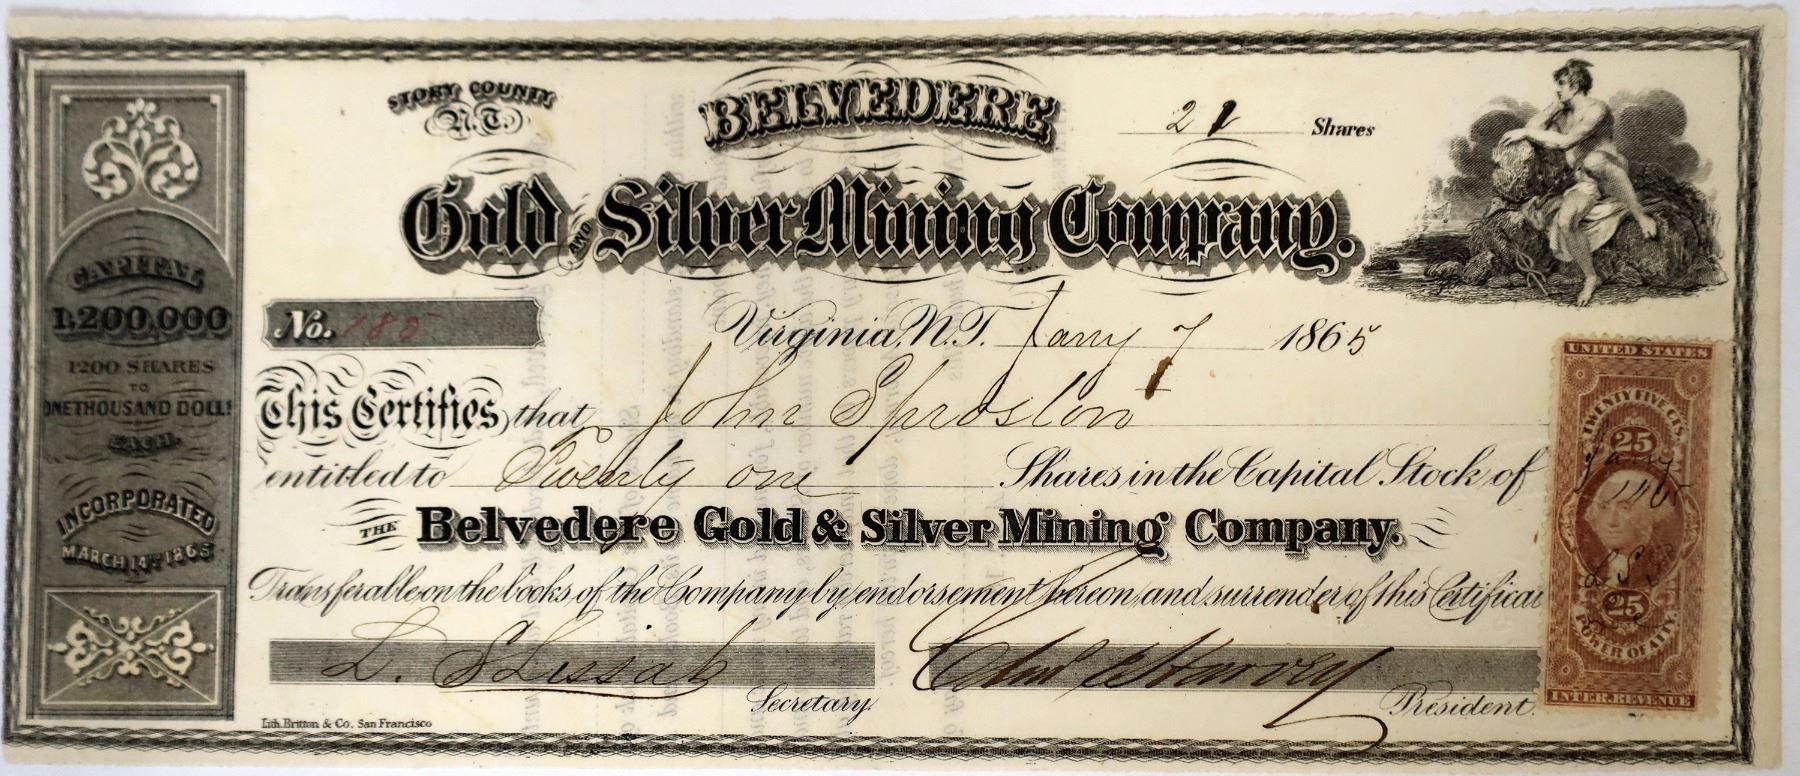 STORY COUNTY
N.T.
BELVEDERE
21 Shares
Gold AND Silver Mining Company.
CAPITAL
1,200,000
1200 SHARES
TO
ONE THOUSAND DOLLS
EACH.
INCORPORATED
MARCH 14TH 1863
No. 185
Virginia, N.T. Jany 7 1865
This Certifies that John Sproston
entitled to Twenty one Shares in the Capital Stock of
THE Belvedere Gold & Silver Mining Company.
Transferable on the books of the Company by endorsement hereon and surrender of this Certificat
L. Secretary.
Harvey President.
Lith. Britton & Co. San Francisco
UNITED STATES
TWENTY FIVE CTS.
25
Jany
25
POWER OF ATTY.
INTER. REVENUE